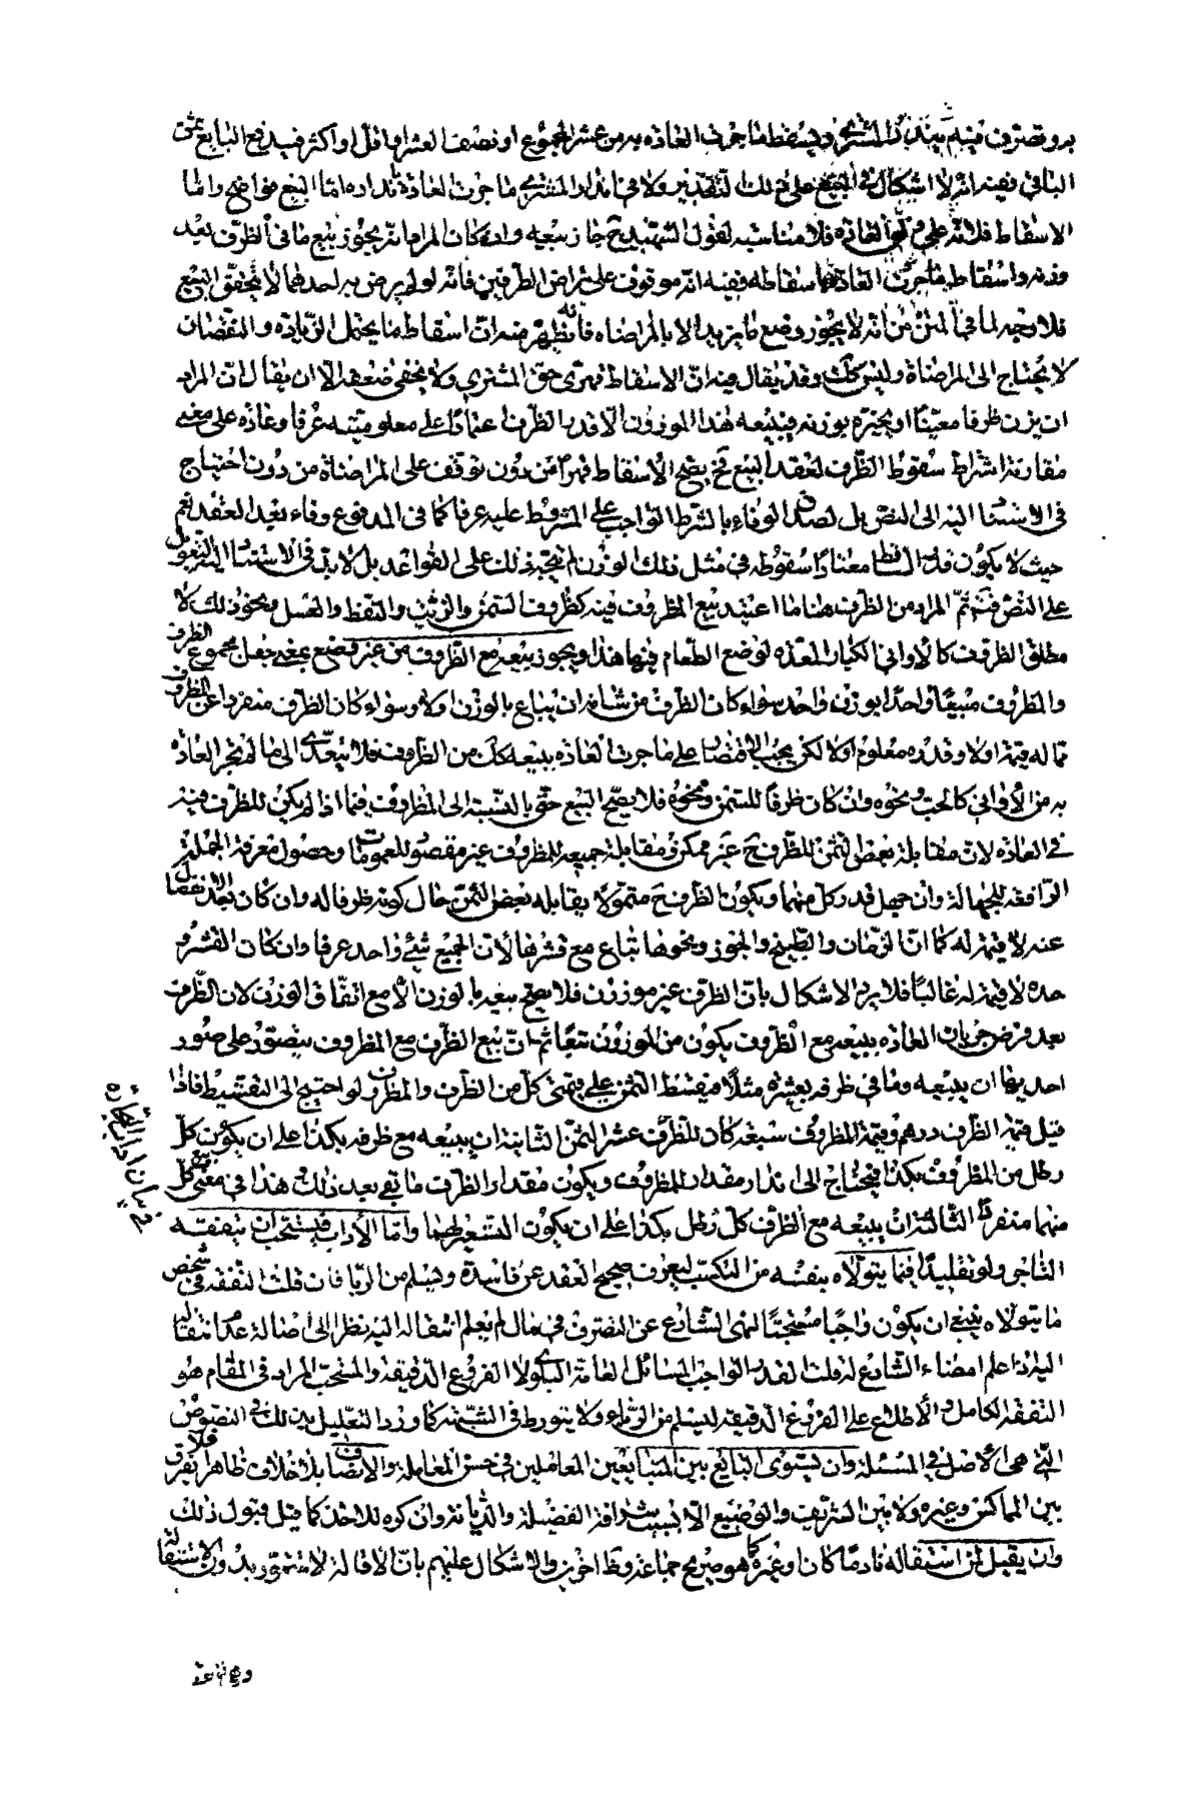 الباقي وفيه انه لا اشكال في البيع على ذلك التقدير ولا في اندار المشتري ما جرت العادة بانداره اما البيع فواضح واما
الاسقاط فلانه على العادة فلا مناسبة لقول الشهيد ح جاز بيعه وان كان المراد انه يجوز بيع ما في الظرف بعيد
وزنه واسقاط ما جرت العادة باسقاطه ففيه انه موقوف على تراضي الطرفين فانه لو لم يرض به احدهما لا يتحقق البيع
فلا وجه لما في المتن من انه لا يجوز وضع ما يزيد الا بالمراضاة فانه يظهر منه ان اسقاط ما يحتمل الزيادة والنقصان
لا يحتاج الى المراضاة وليس كك وقد يقال فيه ان الاسقاط قهري حق المشتري ولا يخفى ضعفه الا ان يقال ان المراد
ان يزن ظرفا معينا او يخبره بوزنه فيبيعه هذا الموزون الا قدر الظرف اعتمادا على معلوميته عرفا وعادة على معنى
مقارنة اشتراط سقوط الظرف لعقد البيع فح يصح الاسقاط قهرا من دون توقف على المراضاة من دون احتياج
في الاستناد اليه الى النص بل لصدق الوفاء بالشرط الواجب على المشروط عليه عرفا كما في المدفوع وفاء بعيد العقد نعم
حيث لا يكون قدر الساقط معتادا سقوطه في مثل ذلك الوزن لم يتجه ذلك على القواعد بل لا بد في الاستناد اليه التعويل
على النص فتم ثم المراد من الظرف هنا ما اعتيد بيع المظروف فيه كظروف السمن والزيت والنفط والعسل ونحو ذلك لا
مطلق الظرف كالاواني الكبار المعدة لوضع الطعام فيها هذا ويجوز بيعه مع الظروف من غير وضع بمعنى جعل مجموع الظرف
والمظروف مبيعا واحدا بوزن واحد سواء كان الظرف من شانه ان يباع بالوزن او لا وسواء كان الظرف منفردا عن المظروف
مما له قيمة اولا وقدره معلوم اولا لكن يجب الاقتصار على ما جرت العادة ببيعه كك من الظروف فلا يتعدى الى ما لم تجر العادة
به من الأواني كالحب ونحوه وان كان ظرفا للسمن ونحوه فلا يصح البيع حتى بالنسبة الى المظروف فيما اذا لم يكن للظرف قيمة
في العادة لان مقابلة بعض الثمن للظرف ح غير ممكن ومقابلة جميعه للمظروف غير مقصود للعمومات وحصول معرفة الجملة
الرافعة للجهالة وان جهل قدر كل منهما ويكون الظرف ح متمولا يقابله بعض الثمن حال كونه ظرفا له وان كان بعد الانفصال
عنه لا قيمة له كما ان الرمان والبطيخ والجوز ونحوها تباع مع قشرها لان الجميع شيء واحد عرفا وان كان القشر و
حده لا قيمة له غالبا فلا يرد الاشكال بان الظرف غير موزون فلا يصح بيعه بالوزن الا مع اتفاق الوزن لان الظرف
بعد فرض جريان العادة ببيعه مع المظروف يكون من الموزون تبعا ثم ان بيع الظرف مع المظروف يتصور على صور
احديها ان يبيعه وما في ظرفه بعشرة مثلا فيقسط الثمن على قيمتي كل من الظرف والمظروف لو احتيج الى التقسيط فاذا
قيل قيمة الظرف درهم وقيمة المظروف سبعة كان للظرف عشر الثمن الثانية ان يبيعه مع ظرفه بكذا على ان يكون كل
رطل من المظروف بكذا فيحتاج الى اندار مقدار للمظروف ويكون مقدار الظرف ما بقي بعد ذلك هذا في معنى كل
منهما منفردا الثالثة ان يبيعه مع الظرف كل رطل بكذا على ان يكون التسعير لهما واما الآداب فيستحب ان يتفقه
التاجر ولو تقليدا فيما يتولاه بنفسه من التكسب ليعرف صحيح العقد عن فاسدة ويسلم من الربا فان قلت التفقه في شخص
ما يتولاه ينبغي ان يكون واجبا مستحبا لنهي الشارع عن التصرف في مال لم يعلم انتقاله اليه نظرا الى اصالة عدم انتقاله
اليه اذا علم امضاء الشارع له قلت القدر الواجب المسائل العامة البلوى لا الفروع الدقيقة والمستحب المراد في المقام هو
التفقه الكامل والاطلاع على الفروع الدقيقة ليسلم من الربا ولا يتورط في الشبهة كما ورد التعليل بذلك في النصوص
التي هي الاصل في المسئلة وان يستوى البايع بين المتبايعين المعاملين في حسن المعاملة والانصاف بلا خلاف ظاهرا فلا يفرق
بين المماكس وغيره ولا بين الشريف والوضيع الا بسبب شرافة الفضيلة والديانة وان كره للاخذ كما قيل قبول ذلك
وان يقيل لمن استقاله نادما كان او غيره كما هو صريح جماعة وظ اخرين والاشكال عليهم بان الاقالة لا تتصور بدون الاستقالة